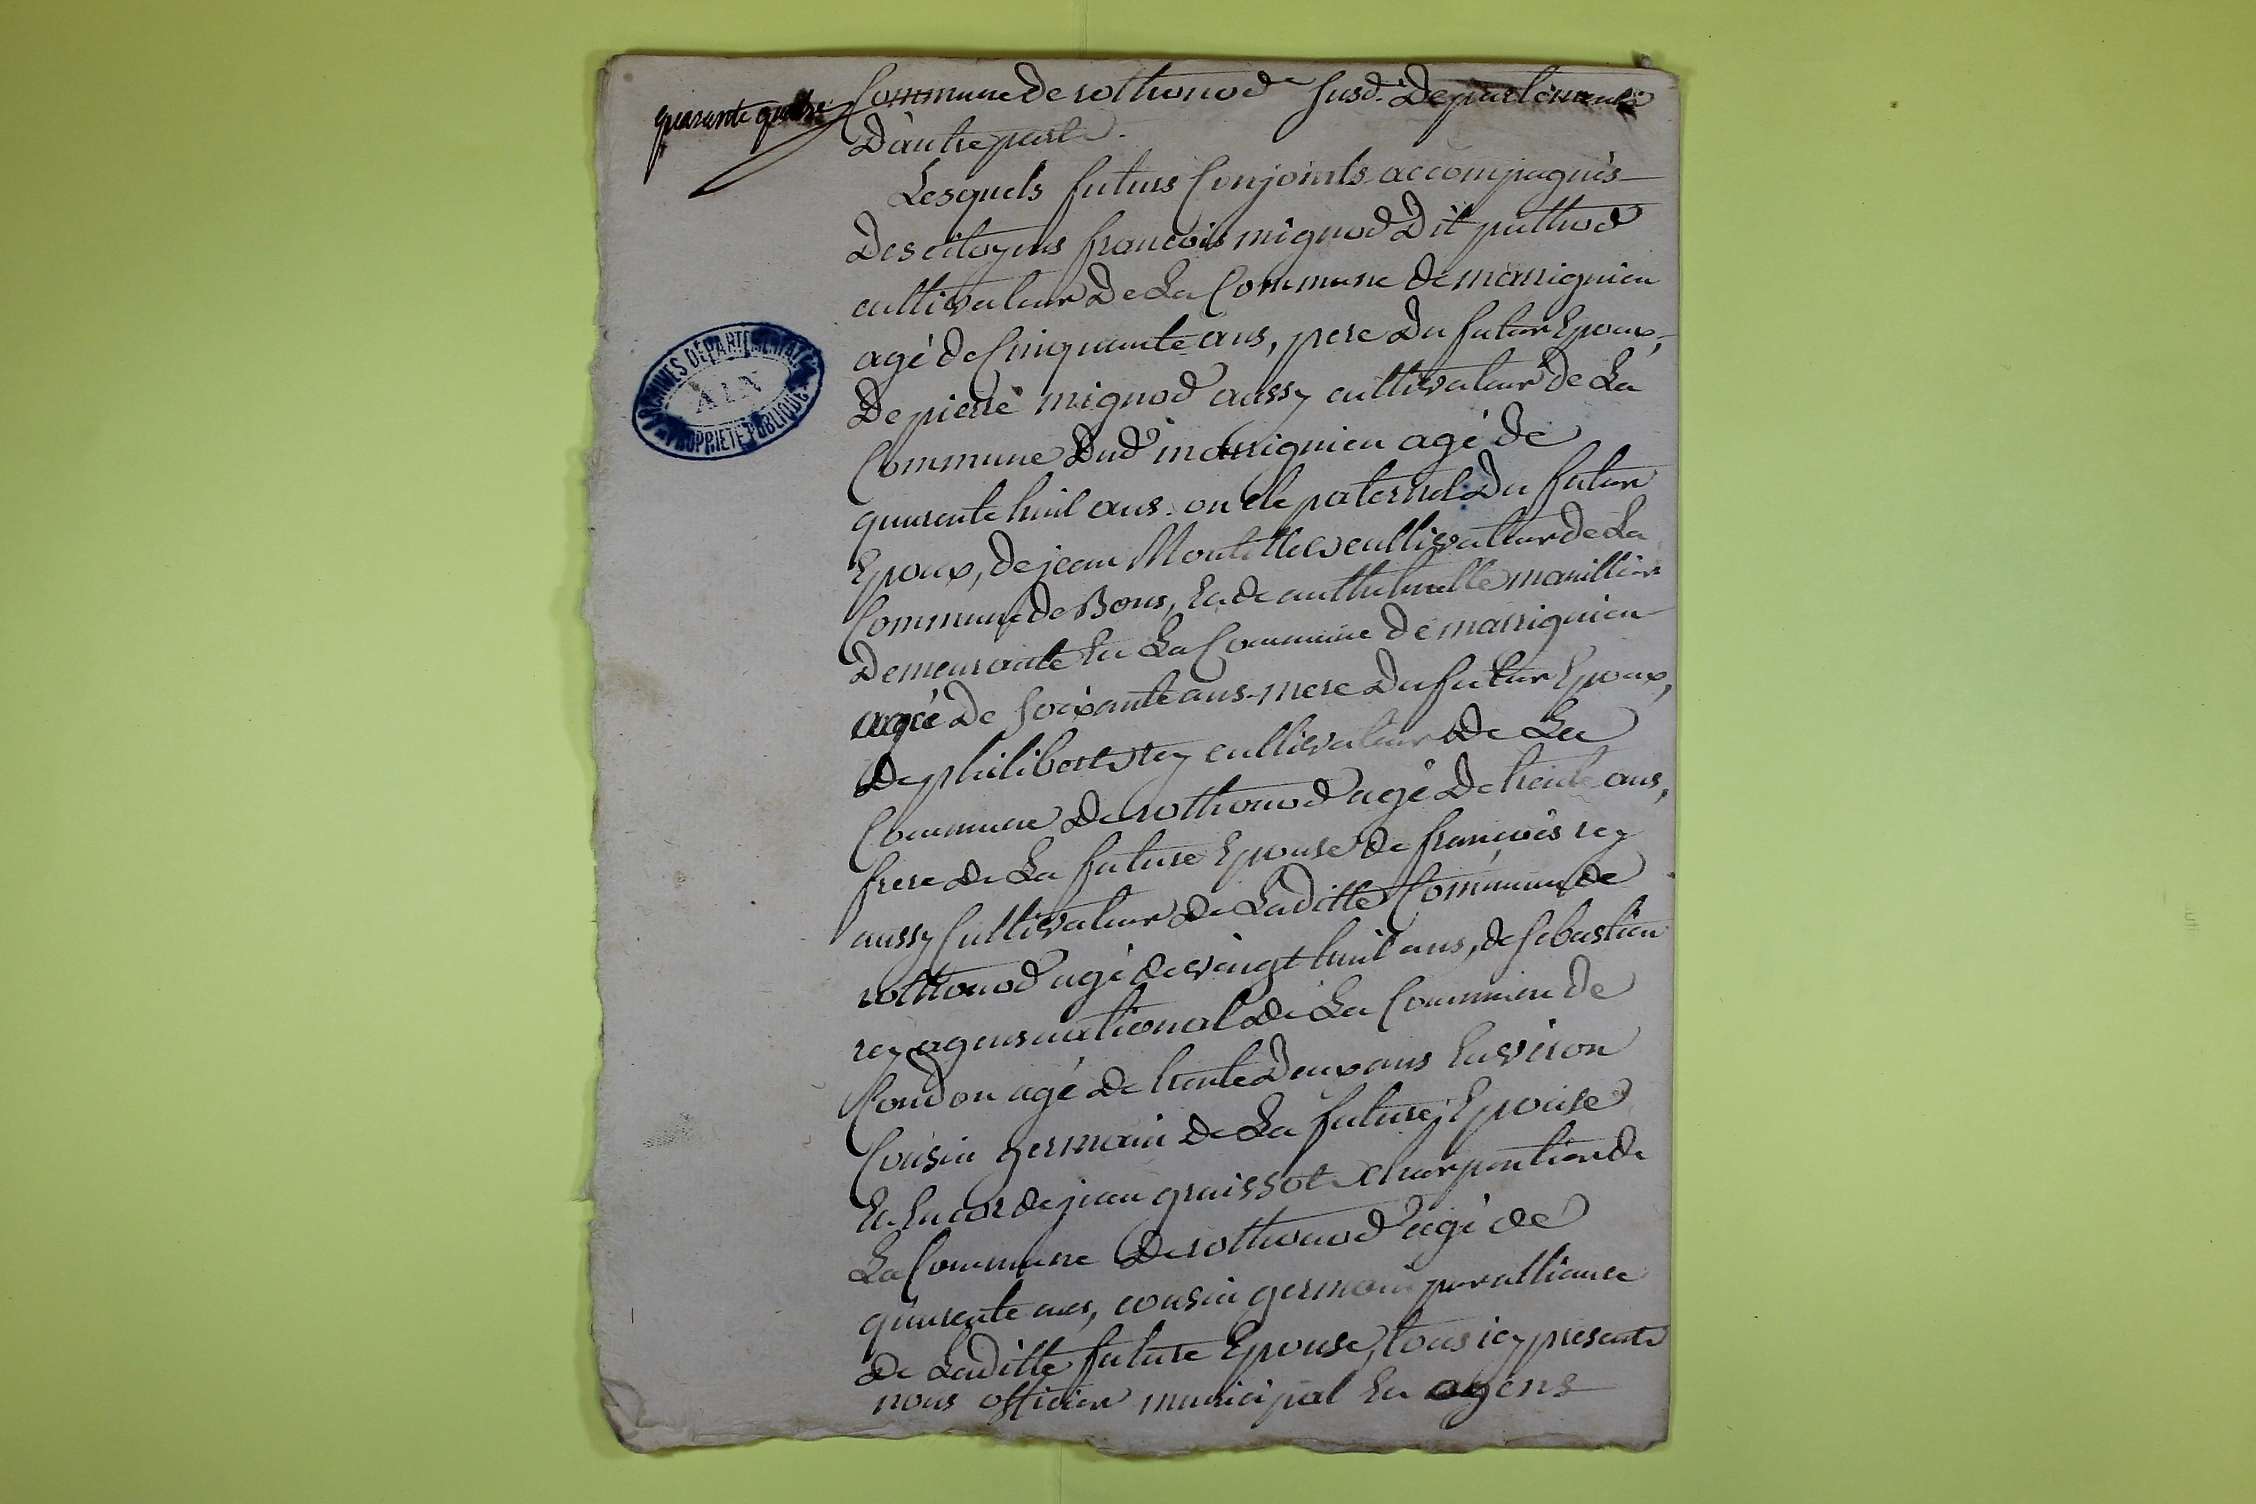 quarante quatre
Commune de rothonod susd. Departement
D'autre part.
Lesquels futurs Conjoints accompagnés
Des citoyens francois mignod Dit pathod
cultivateur De La Commune de marrignieu
agé de Cinquante ans, pere Du futur Epoux,
De pierre mignod aussy cultivateur de La
Commune Dud marrignieu agé de
quarente huit ans oncle paternel Du futur
Epoux, de jean cultivatteur de La
Commune de Bons, Et de anthelmette
Demeurante En La Commune de marrignieu
agée de soixante ans mere Du futur Epoux,
De philibert rey cultivateur De La
Commune De rothonod agé De trente ans,
frere de La future Epouse de françois rey
aussy Cultivateur De Laditte Commune de
rothonod agé de vingt huit ans, de sebastien
rey agens national de La Commune de
Condon agé De trente Deux ans Environ
Cousin germain de La future Epouse
Et Encor de jean graissot charpentier de
La Commune De rothonod agé de
quarente ans, cousin germain par alliance
De Laditte future Epouse, tous icy presents
nous officier municipal En agens
ARCHIVES DÉPARTEMENTALES
AIN
PROPRIÉTÉ PUBLIQUE